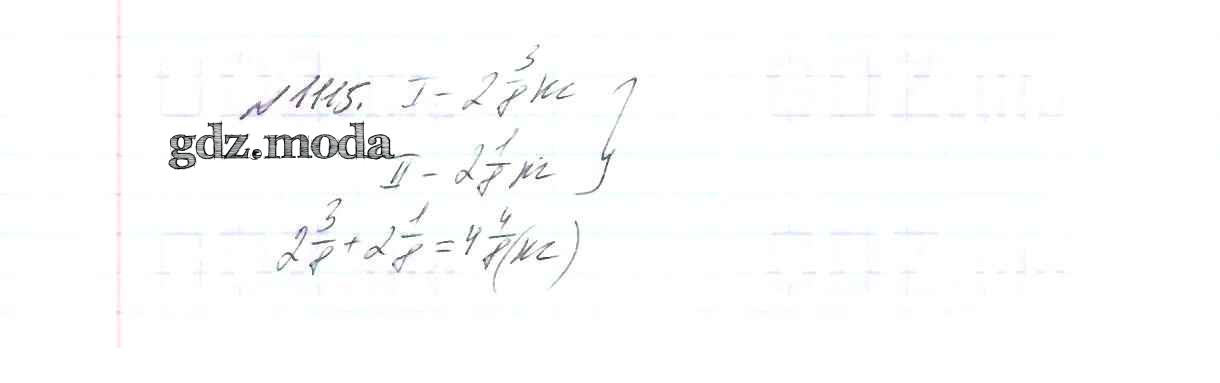 №1115. I - 2 3/8 кг
gdz.moda
II - 2 1/8 кг
2 3/8 + 2 1/8 = 4 4/8 (кг)